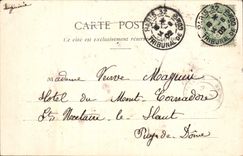 CARTE POSTALE
Ce côté est exclusivement réservé
PARIS 32
TRIBUNAL DE
Madame Veuve Magnien
Hotel du Mont Cornadore
St Nectaire le Haut
Puy-de-Dôme